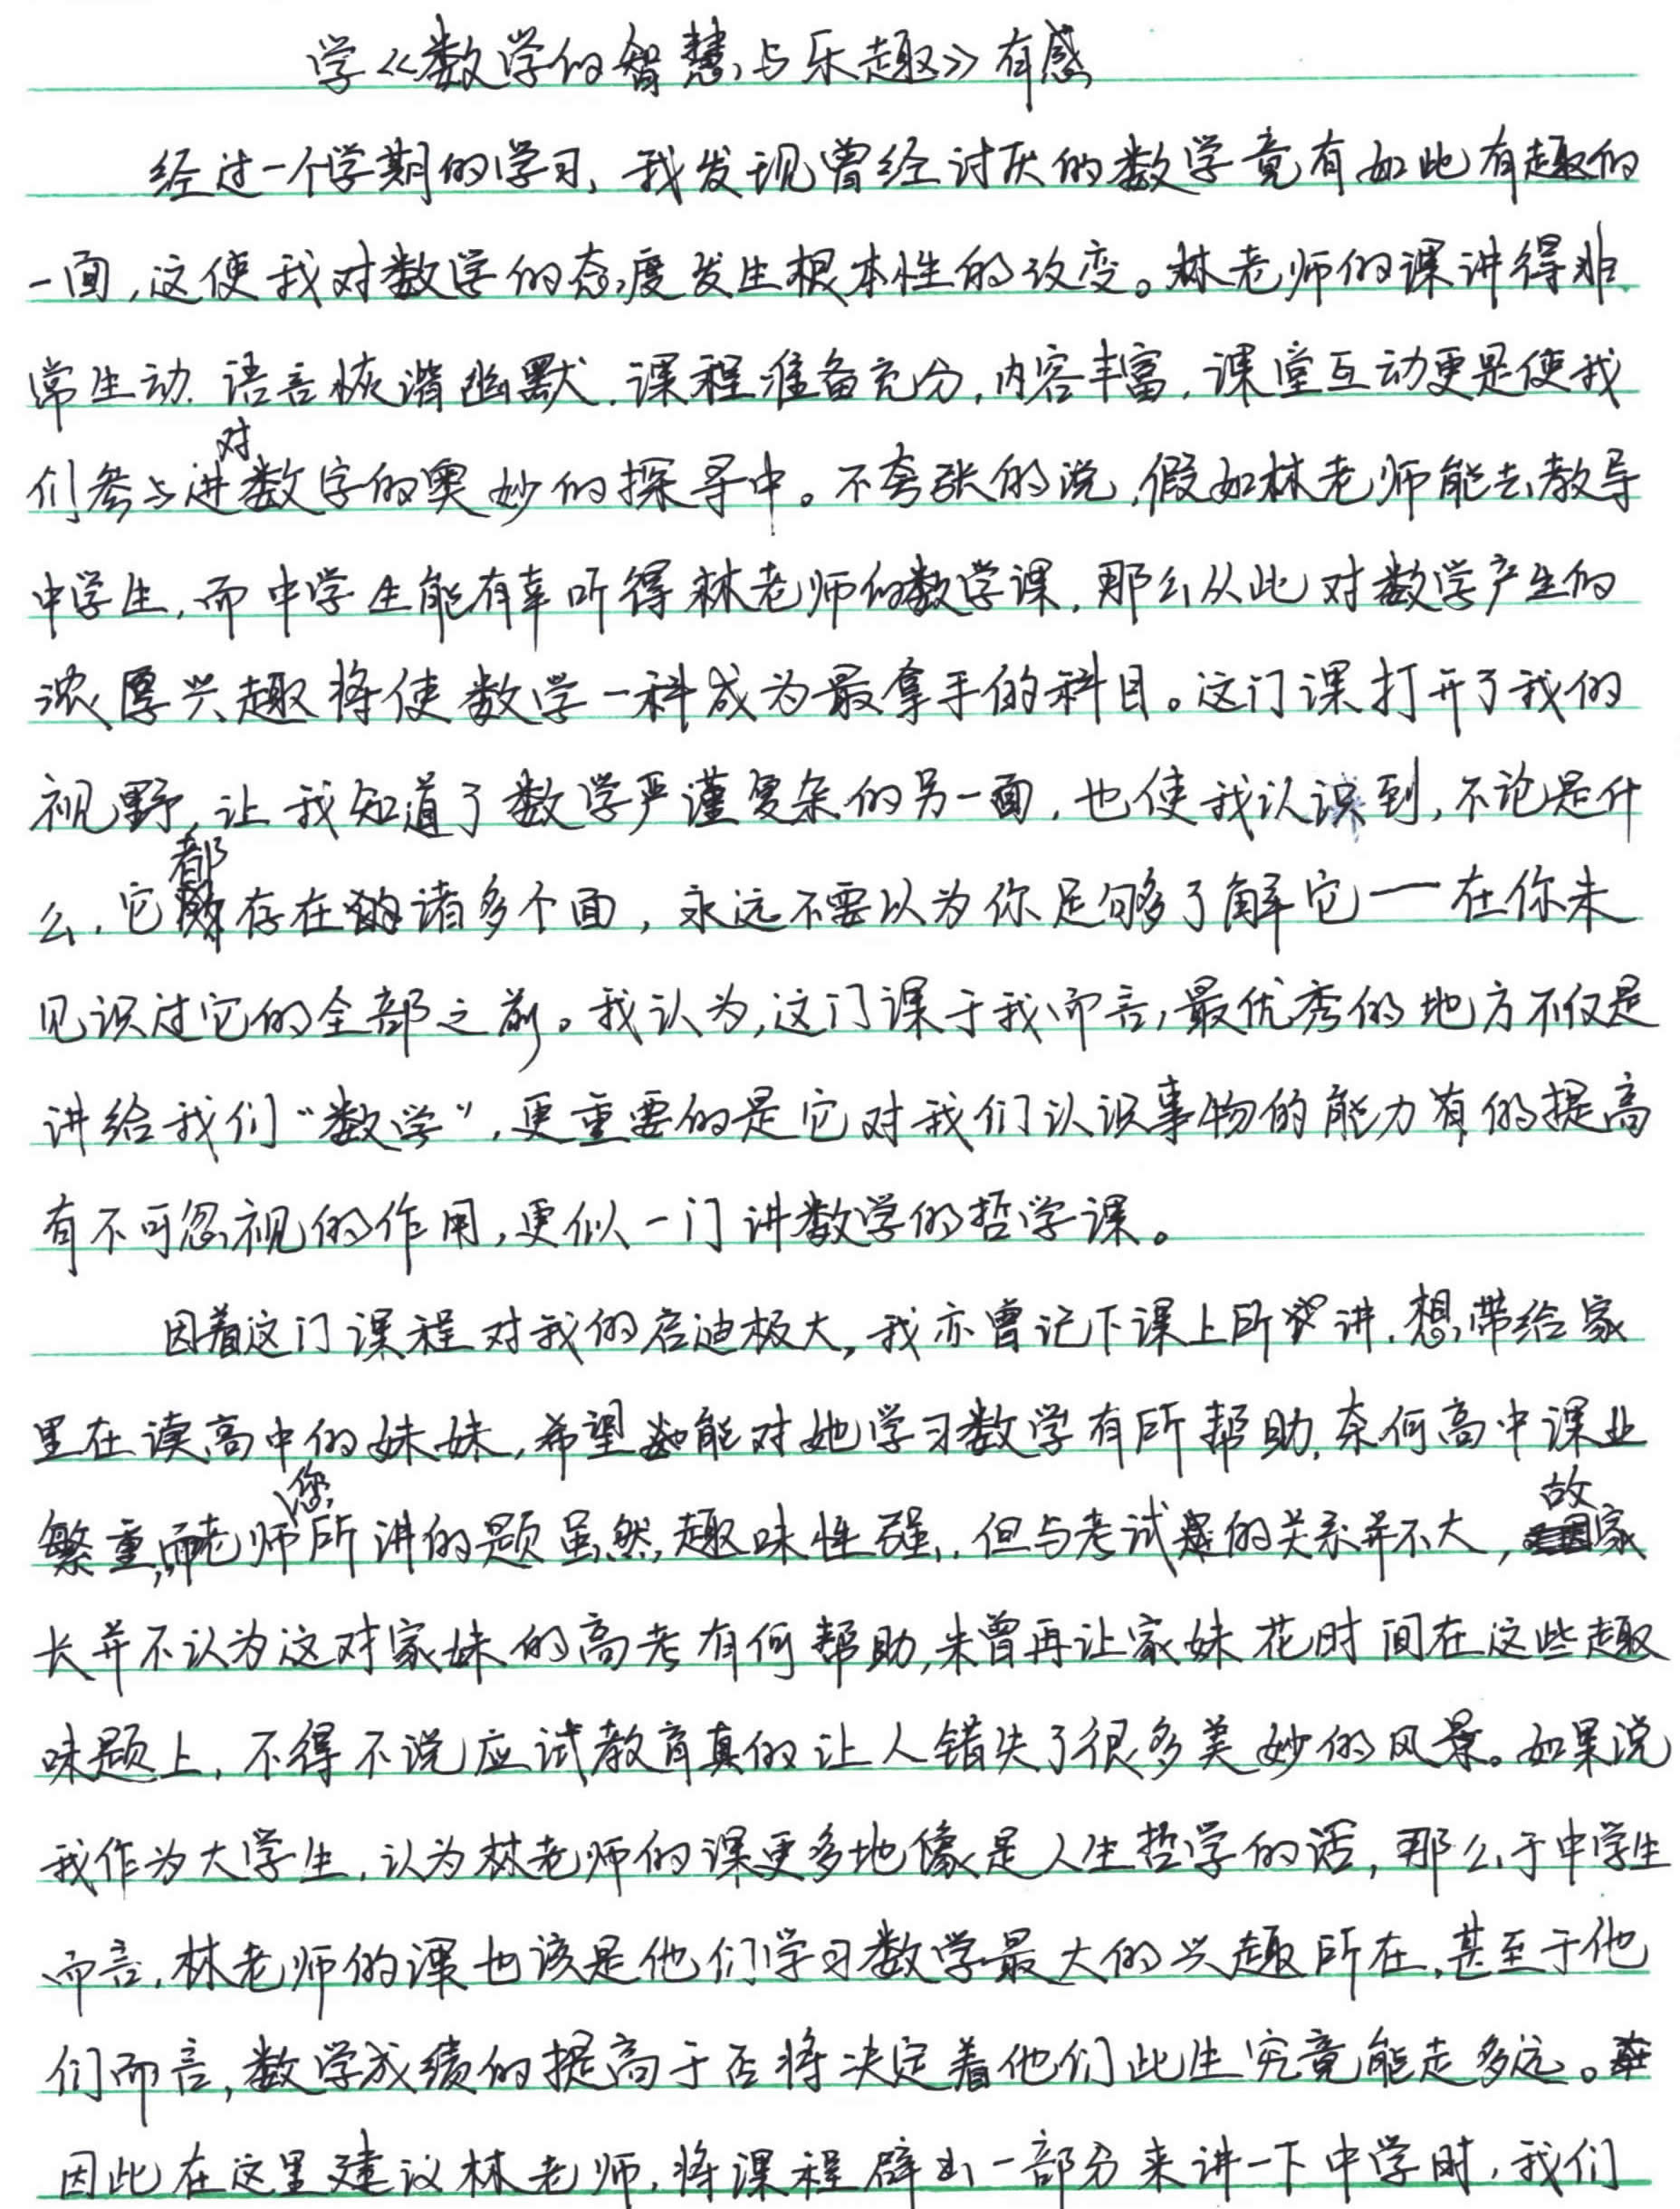 学《数学的智慧与乐趣》有感
经过一个学期的学习，我发现曾经讨厌的数学竟有如此有趣的
一面，这使我对数学的态度发生根本性的改变。林老师的课讲得非
常生动，语言恢谐幽默，课程准备充分，内容丰富，课堂互动更是使我
们参与进对数字的奥妙的探寻中。不夸张的说，假如林老师能去教导
中学生，而中学生能有幸听得林老师的数学课，那么从此对数学产生的
浓厚兴趣将使数学一科成为最拿手的科目。这门课打开了我的
视野，让我知道了数学严谨复杂的另一面，也使我认识到，不论是什
么，它都存在诸多个面，永远不要以为你足够了解它——在你未
见识过它的全部之前。我认为，这门课于我而言，最优秀的地方不仅是
讲给我们“数学”，更重要的是它对我们认识事物的能力有的提高
有不可忽视的作用，更似一门讲数学的哲学课。
因着这门课程对我的启迪极大，我亦曾记下课上所讲，想带给家
里在读高中的妹妹，希望能对她学习数学有所帮助，奈何高中课业
繁重，而老师您所讲的题虽然趣味性强，但与考试的关系并不大，故家
长并不认为这对家妹的高考有何帮助，未曾再让家妹花时间在这些趣
味题上，不得不说应试教育真的让人错失了很多美妙的风景。如果说
我作为大学生，认为林老师的课更多地像是人生哲学的话，那么于中学生
而言，林老师的课也该是他们学习数学最大的兴趣所在，甚至于他
们而言，数学成绩的提高于否将决定着他们此生究竟能走多远。
因此在这里建议林老师，将课程辟出一部分来讲一下中学时，我们